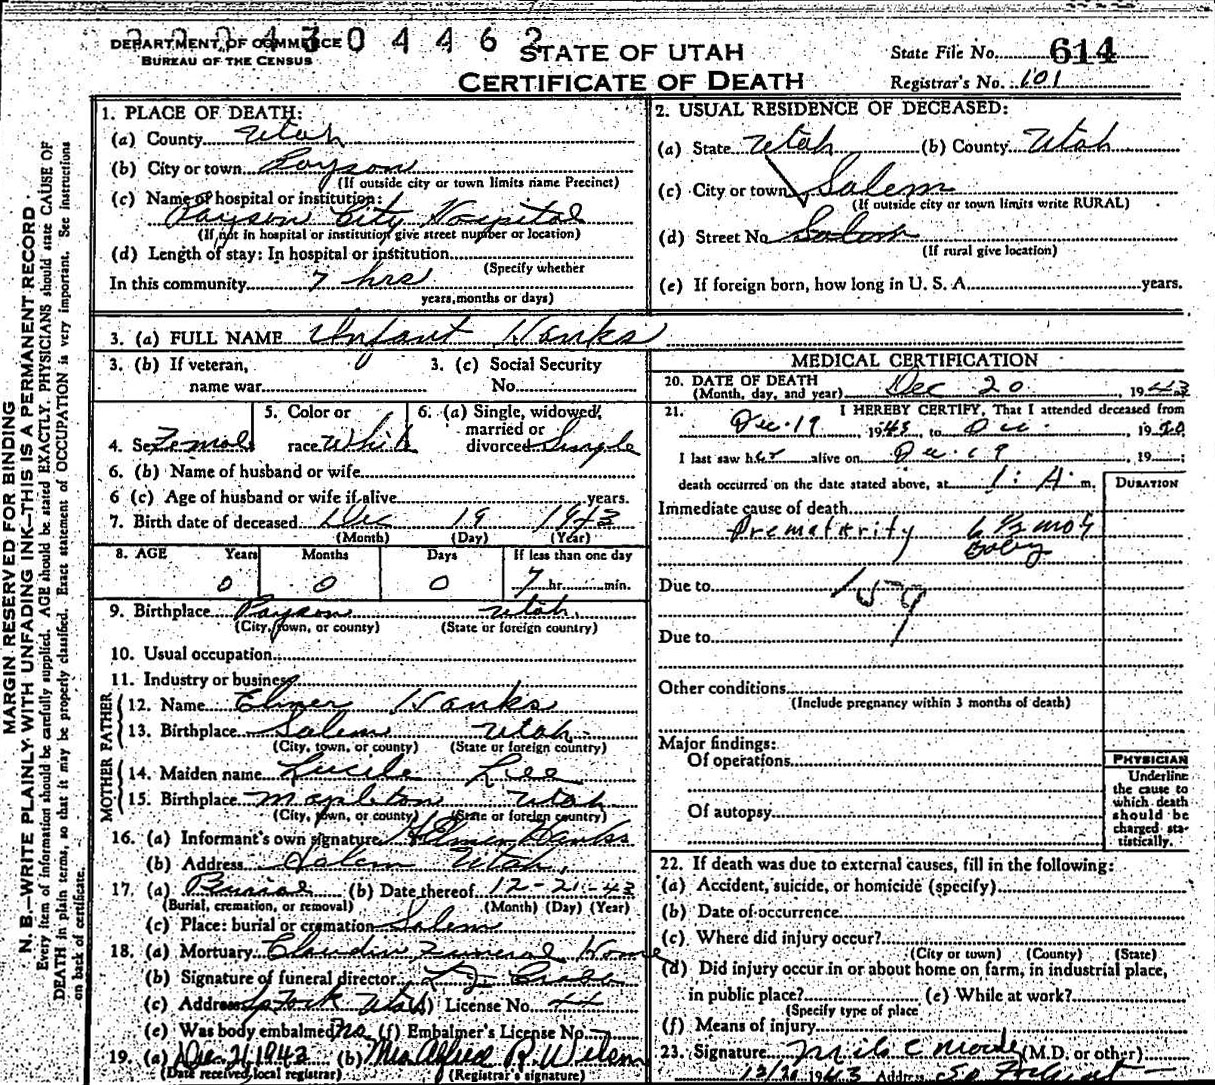 DEPARTMENT OF COMMERCE
BUREAU OF THE CENSUS
STATE OF UTAH
CERTIFICATE OF DEATH
State File No. 614
Registrar's No. 101
MARGIN RESERVED FOR BINDING
N. B.—WRITE PLAINLY WITH UNFADING INK—THIS IS A PERMANENT RECORD
Every item of information should be carefully supplied. AGE should be stated EXACTLY. PHYSICIANS should state CAUSE OF
DEATH in plain terms, so that it may be properly classified. Exact statement of OCCUPATION is very important. See instructions
on back of certificate.
1. PLACE OF DEATH:
(a) County Utah
(b) City or town Payson
(If outside city or town limits name Precinct)
(c) Name of hospital or institution:
Payson City Hospital
(If not in hospital or institution give street number or location)
(d) Length of stay: In hospital or institution
(Specify whether
In this community 7 hrs
years, months or days)
2. USUAL RESIDENCE OF DECEASED:
(a) State Utah (b) County Utah
(c) City or town Salem
(If outside city or town limits write RURAL)
(d) Street No Salem
(If rural give location)
(e) If foreign born, how long in U. S. A. years.
3. (a) FULL NAME Infant Hanks
3. (b) If veteran, name war
3. (c) Social Security No.
4. Sex Female
5. Color or race White
6. (a) Single, widowed, married or divorced Single
6. (b) Name of husband or wife
6 (c) Age of husband or wife if alive years.
7. Birth date of deceased Dec 19 1943
(Month) (Day) (Year)
8. AGE Years Months Days If less than one day
0 0 0 7 hr. min.
9. Birthplace Payson Utah
(City, town, or county) (State or foreign country)
10. Usual occupation
11. Industry or business
FATHER
12. Name Elmer Hanks
13. Birthplace Salem Utah
(City, town, or county) (State or foreign country)
MOTHER
14. Maiden name Lucile Lee
15. Birthplace Mapleton Utah
(City, town, or county) (State or foreign country)
16. (a) Informant's own signature Elmer Hanks
(b) Address Salem Utah
17. (a) Burial (b) Date thereof 12-21-43
(Burial, cremation, or removal) (Month) (Day) (Year)
(c) Place: burial or cremation Salem
18. (a) Mortuary Claudin Funeral Home
(b) Signature of funeral director
(c) Address Sp Fork Utah (d) License No. 44
(e) Was body embalmed No (f) Embalmer's License No.
19. (a) Dec 21 1943 (b) Mrs Alfred R. Wilson
(Date received local registrar) (Registrar's signature)
MEDICAL CERTIFICATION
20. DATE OF DEATH
(Month, day, and year) Dec 20, 1943
21. I HEREBY CERTIFY, That I attended deceased from
Dec. 19, 1943 to Dec. 1920
I last saw her alive on Dec. 19, 19
death occurred on the date stated above, at 1: A m.
DURATION
Immediate cause of death
Prematurity 6 1/2 mo's
Baby
Due to 159
Due to
Other conditions
(Include pregnancy within 3 months of death)
Major findings:
Of operations
Of autopsy
PHYSICIAN
Underline
the cause to
which death
should be
charged sta-
tistically.
22. If death was due to external causes, fill in the following:
(a) Accident, suicide, or homicide (specify)
(b) Date of occurrence
(c) Where did injury occur?
(City or town) (County) (State)
(d) Did injury occur in or about home on farm, in industrial place,
in public place? (e) While at work?
(Specify type of place
(f) Means of injury
23. Signature (M.D. or other)
1943 Address